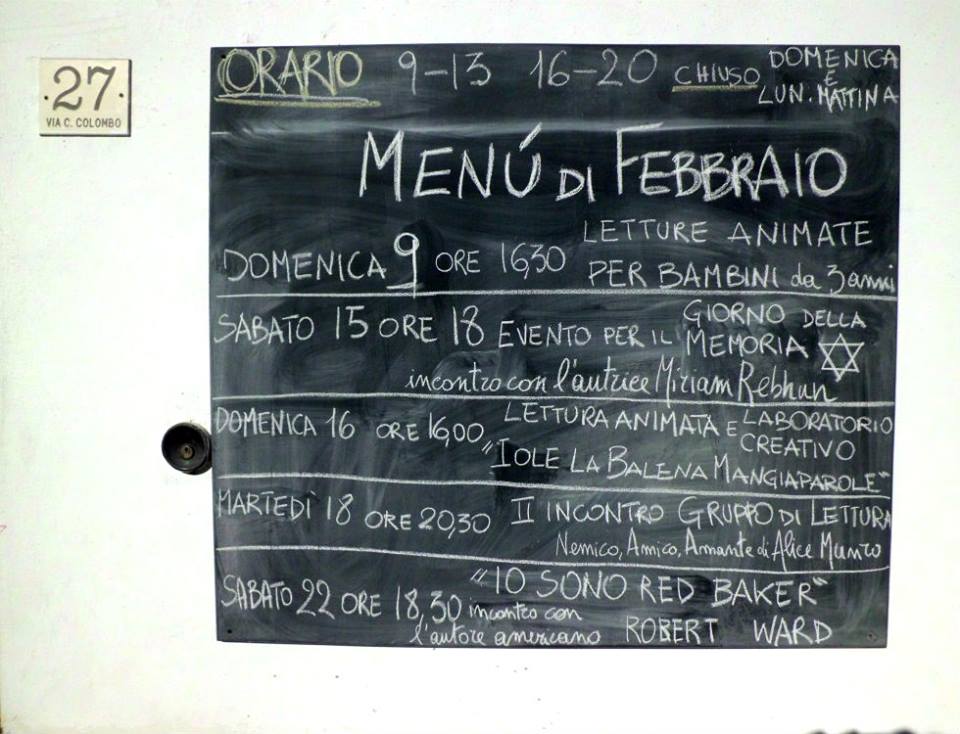 27
VIA C. COLOMBO
ORARIO 9-13 16-20 CHIUSO DOMENICA
E
LUN. MATTINA
MENÚ DI FEBBRAIO
DOMENICA 9 ORE 16,30 LETTURE ANIMATE
PER BAMBINI da 3 anni
SABATO 15 ORE 18 EVENTO PER IL GIORNO DELLA
MEMORIA
incontro con l'autrice Miriam Rebhun
DOMENICA 16 ORE 16,00 LETTURA ANIMATA E LABORATORIO
CREATIVO
"IOLE LA BALENA MANGIAPAROLE"
MARTEDÌ 18 ORE 20,30 II INCONTRO GRUPPO DI LETTURA
Nemico, Amico, Amante di Alice Munro
SABATO 22 ORE 18,30 "IO SONO RED BAKER"
incontro con
l'autore americano ROBERT WARD